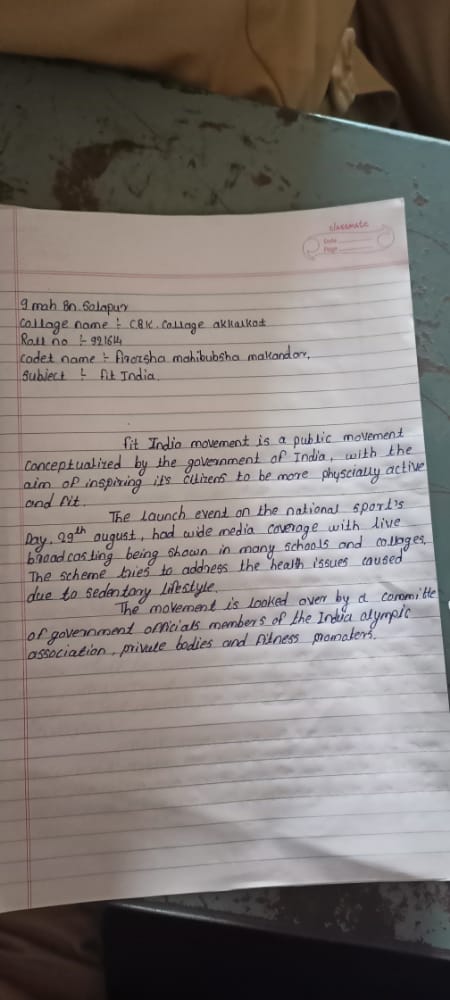 classmate
Date
Page
9 mah Bn. Solapur
Collage name :- C.B.K. Collage akkalkot
Roll no :- 921614
Cadet name :- Arozsha mahibubsha makandar.
Subject :- fit India.
fit India movement is a public movement
conceptualized by the government of India, with the
aim of inspiring its citizens to be more physcially active
and fit.
The launch event on the national sport's
Day, 29th august, had wide media coverage with live
broadcasting being shown in many schools and collages.
The scheme tries to address the health issues caused
due to sedentary lifestyle.
The movement is looked over by a committe
of government officials members of the India olympic
association, private bodies and fitness promaters.